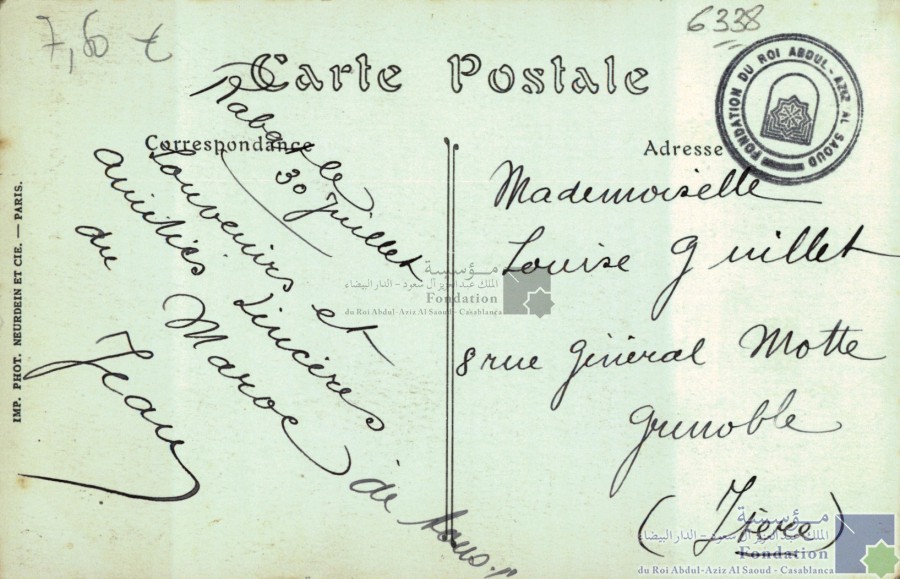 7,60 €
6338
Carte Postale
Correspondance
Adresse
FONDATION DU ROI ABDUL-AZIZ AL SAOUD
IMP. PHOT. NEURDEIN ET CIE. — PARIS.
Rabat le
30 Juillet
Souvenirs et
amitiés sincères
du Maroc de tous.
Jean
Mademoiselle
Louise Guillet
8 rue Général Motte
Grenoble
(Isère)
مؤسسة
الملك عبد العزيز آل سعود - الدار البيضاء
Fondation
du Roi Abdul-Aziz Al Saoud - Casablanca
مؤسسة
الملك عبد العزيز آل سعود - الدار البيضاء
Fondation
du Roi Abdul-Aziz Al Saoud - Casablanca